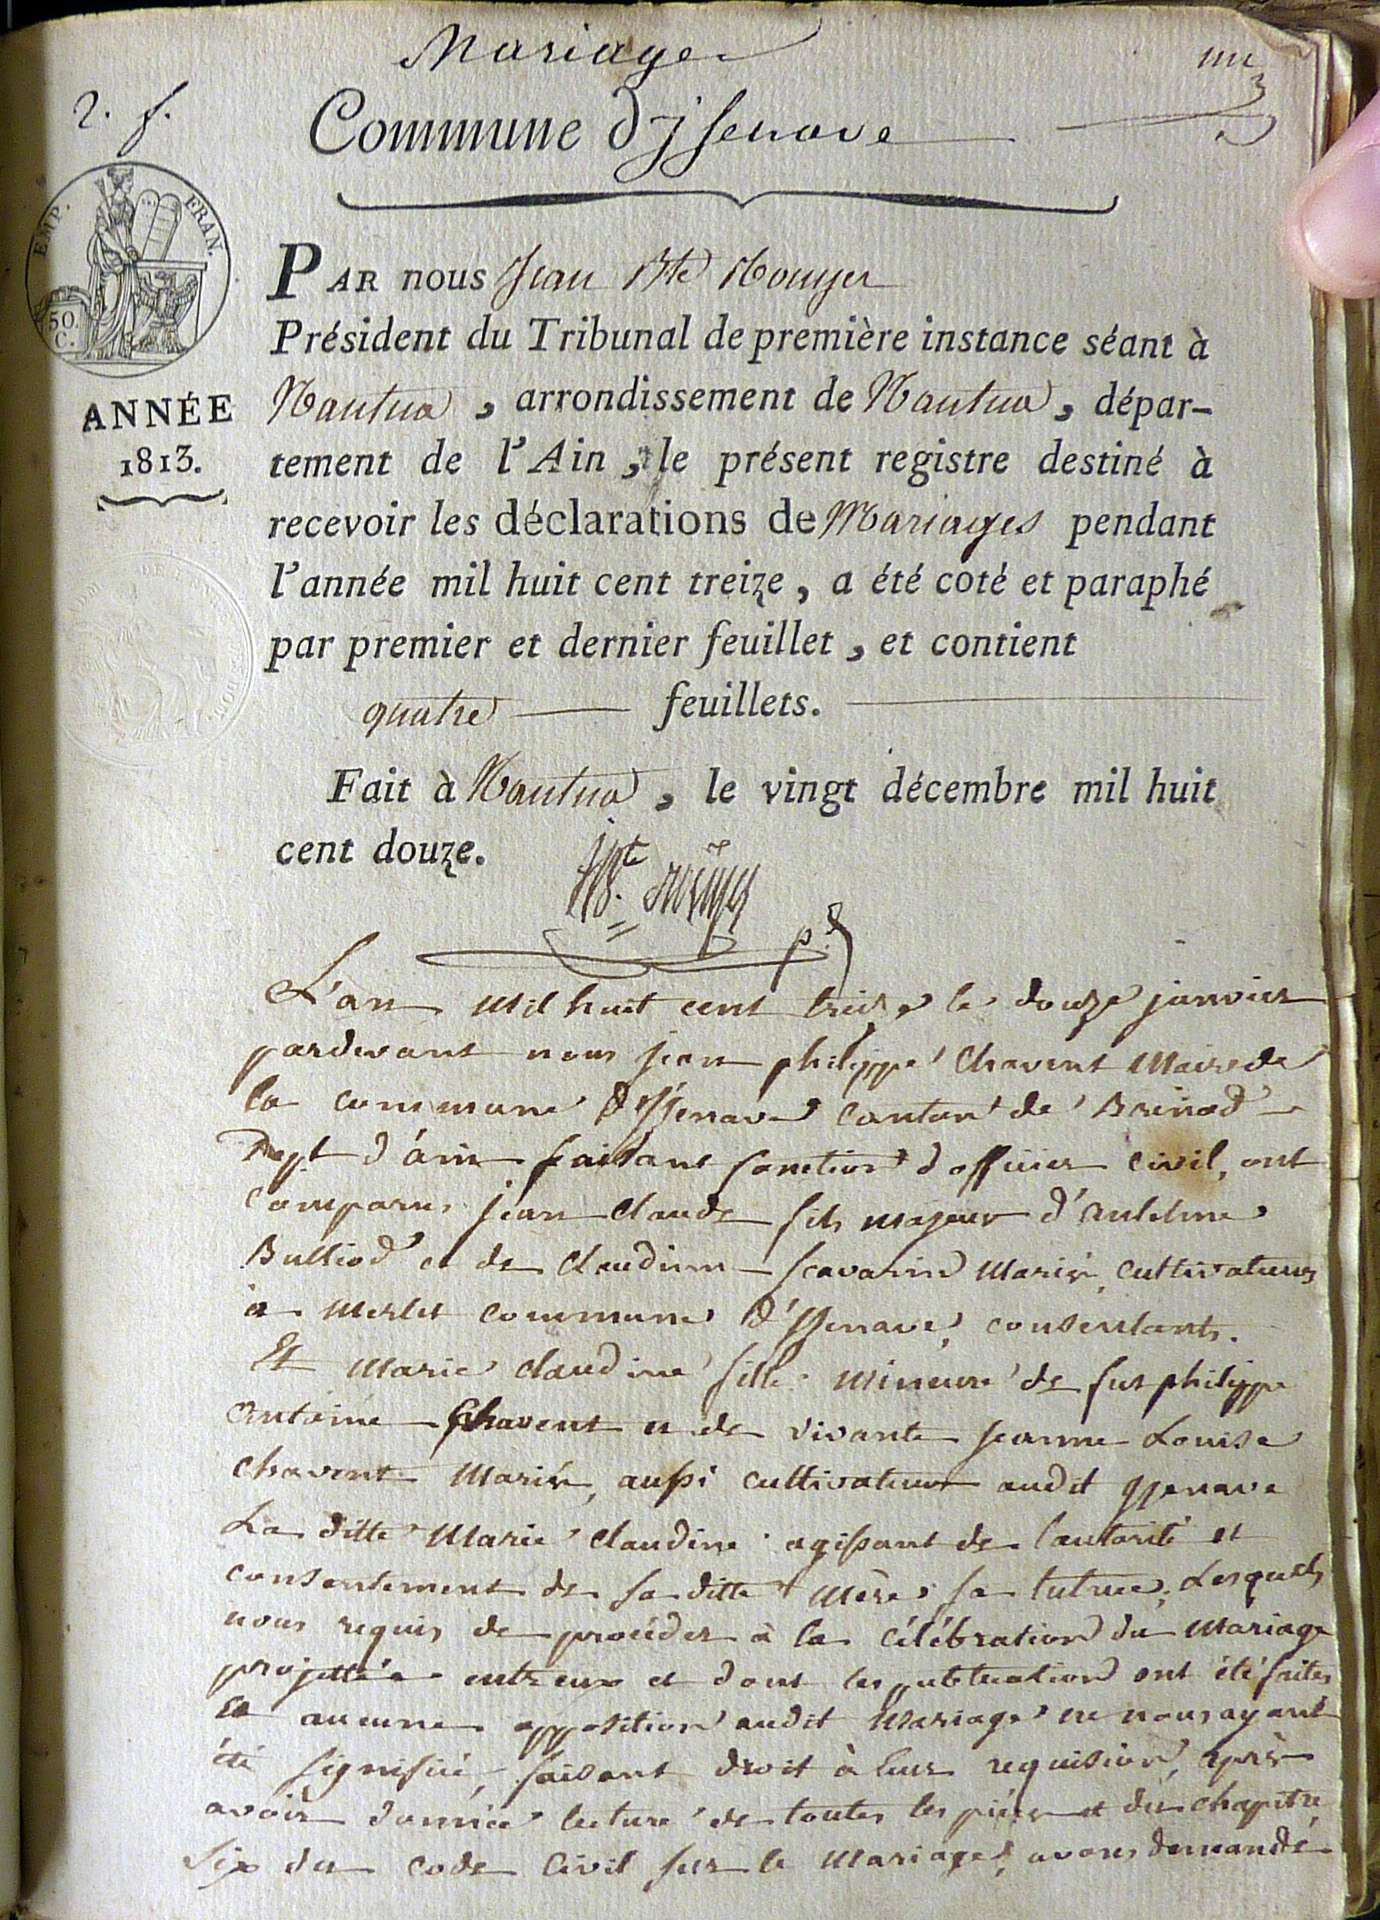 Mariage
2. f.
Commune d'jsenave
EMP. FRAN.
50 C.
ANNÉE
1813.
PAR nous Jean Bte Rouyer
Président du Tribunal de première instance séant à
Nantua, arrondissement de Nantua, dépar-
tement de l'Ain, le présent registre destiné à
recevoir les déclarations de Mariages pendant
l'année mil huit cent treize, a été coté et paraphé
par premier et dernier feuillet, et contient
quatre feuillets.
Fait à Nantua, le vingt décembre mil huit
cent douze.
L'an mil huit cent treize le douze janvier
pardevant nous jean philippe chavent Maire de
la commune d'yssenave canton de Brenod
Dept d'ain faisant fonction d'officier civil, ont
comparus jean claude fils majeur d'antelme
Bulliod et de claudine savarin Mariés, cultivateurs
à merlet commune d'yssenave, consentants.
Et marie claudine fille mineure de fut philippe
antoine Chavent et de vivante jeanne Louise
chavent Mariés, aussi cultivateurs audit yssenave
La ditte Marie claudine agissant de l'autorité et
consentement de sa ditte mère sa tutrice, Lesquels
nous requis de procéder à la célébration du mariage
projetté entreux et dont les publication ont été faites
Et aucune opposition audit Mariage ne nous ayant
été signifié, faisant droit à leur requision, après
avoir donnée lecture de toutes les pièces et du chapitre
Six du code Civil sur le mariage, avons demandé